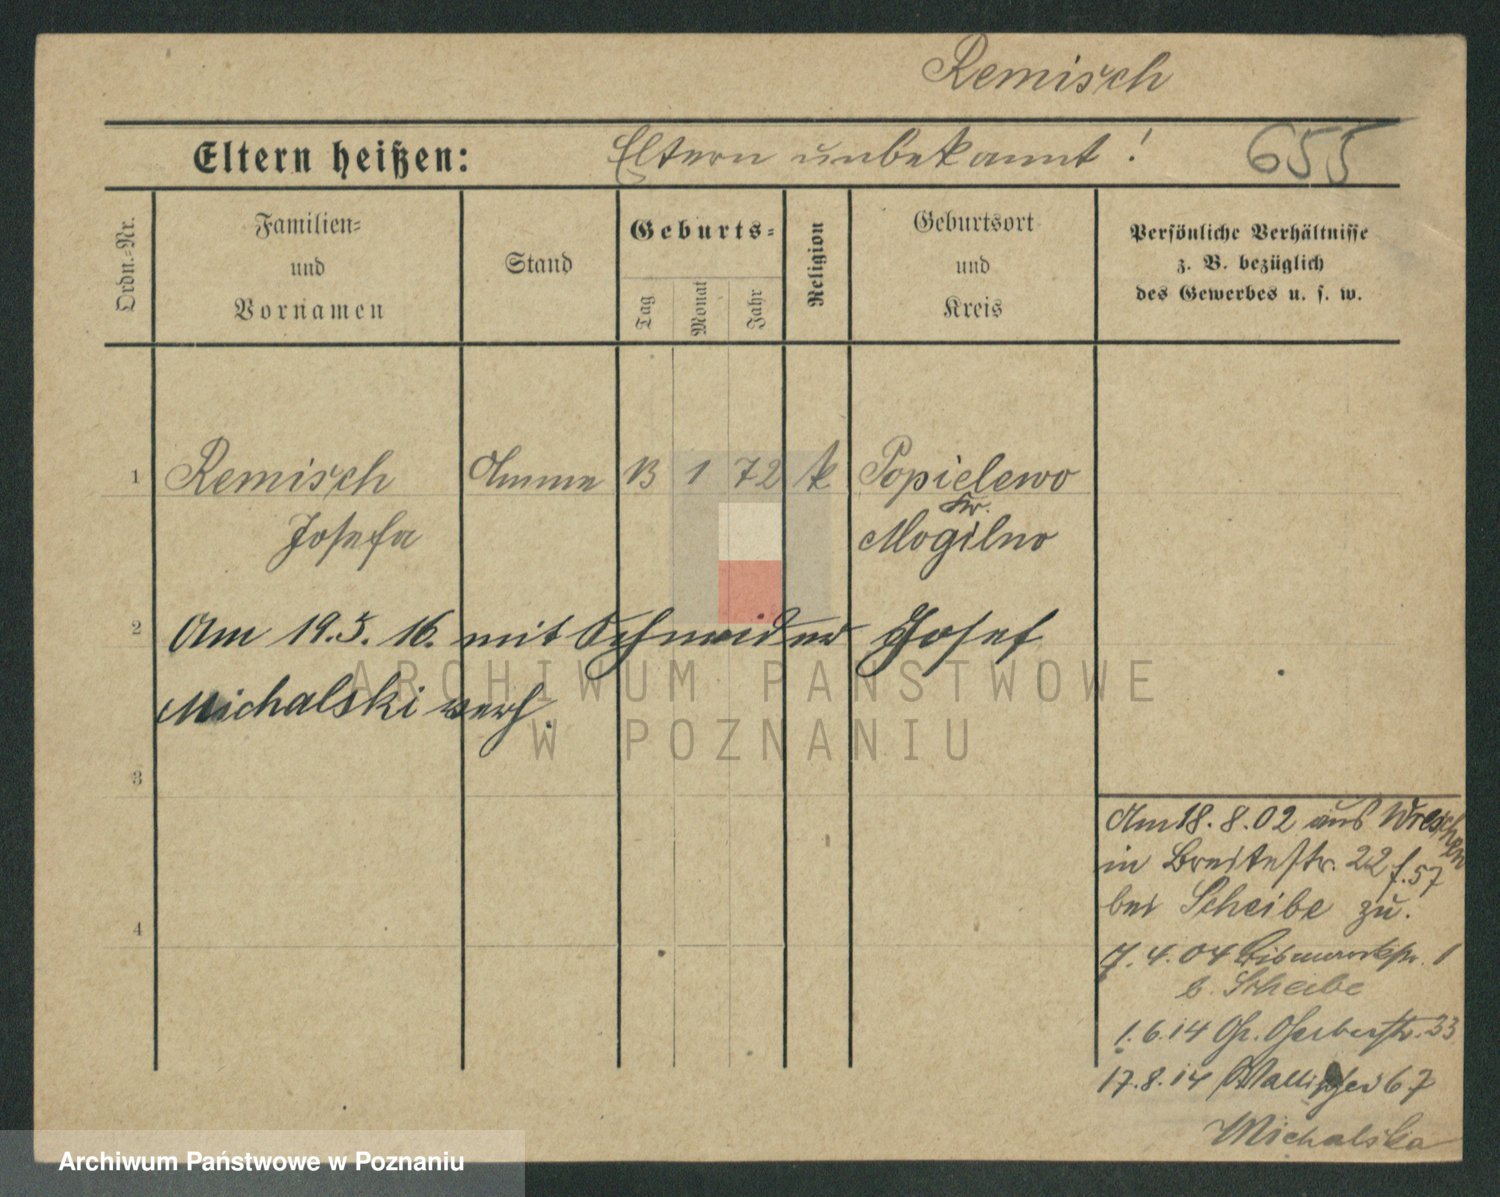 Remisch
Eltern heißen: Eltern unbekannt! 655
Ordn.-Nr.
Familien-
und
Vornamen
Stand
Geburts-
Tag
Monat
Jahr
Religion
Geburtsort
und
Kreis
Persönliche Verhältnisse
z. B. bezüglich
des Gewerbes u. s. w.
1 Remisch Amme 13 1 72 k Popielewo
Kr.
Josefa Mogilno
2 Am 19.5.16. mit Schneider Josef
Michalski verh.
3
4
Am 18.8.02 aus Wreschen
in Breitestr. 22 f. 57
bei Scheibe zu.
7.4.04 Bismarckstr. 1
b. Scheibe
1.6.14 Gr. Gerberstr. 33
17.8.14 Wallischei 67
Michalska
ARCHIWUM PAŃSTWOWE
W POZNANIU
Archiwum Państwowe w Poznaniu